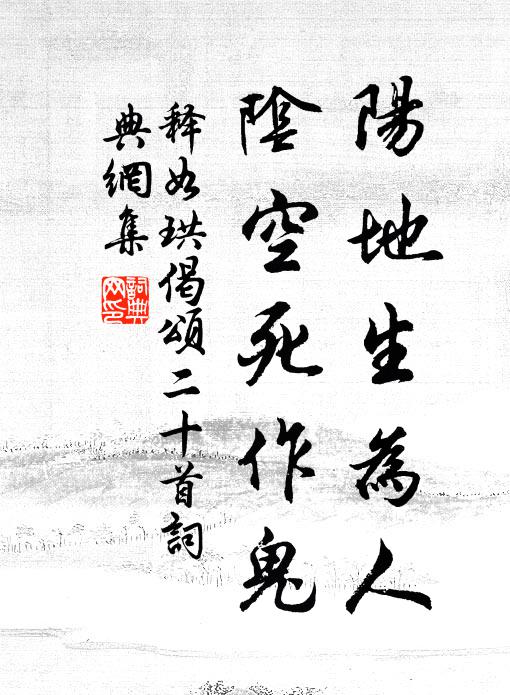 陽地生為人
陰空死作鬼
釋如珙偈頌二十首詞
典網集
詞典
网印